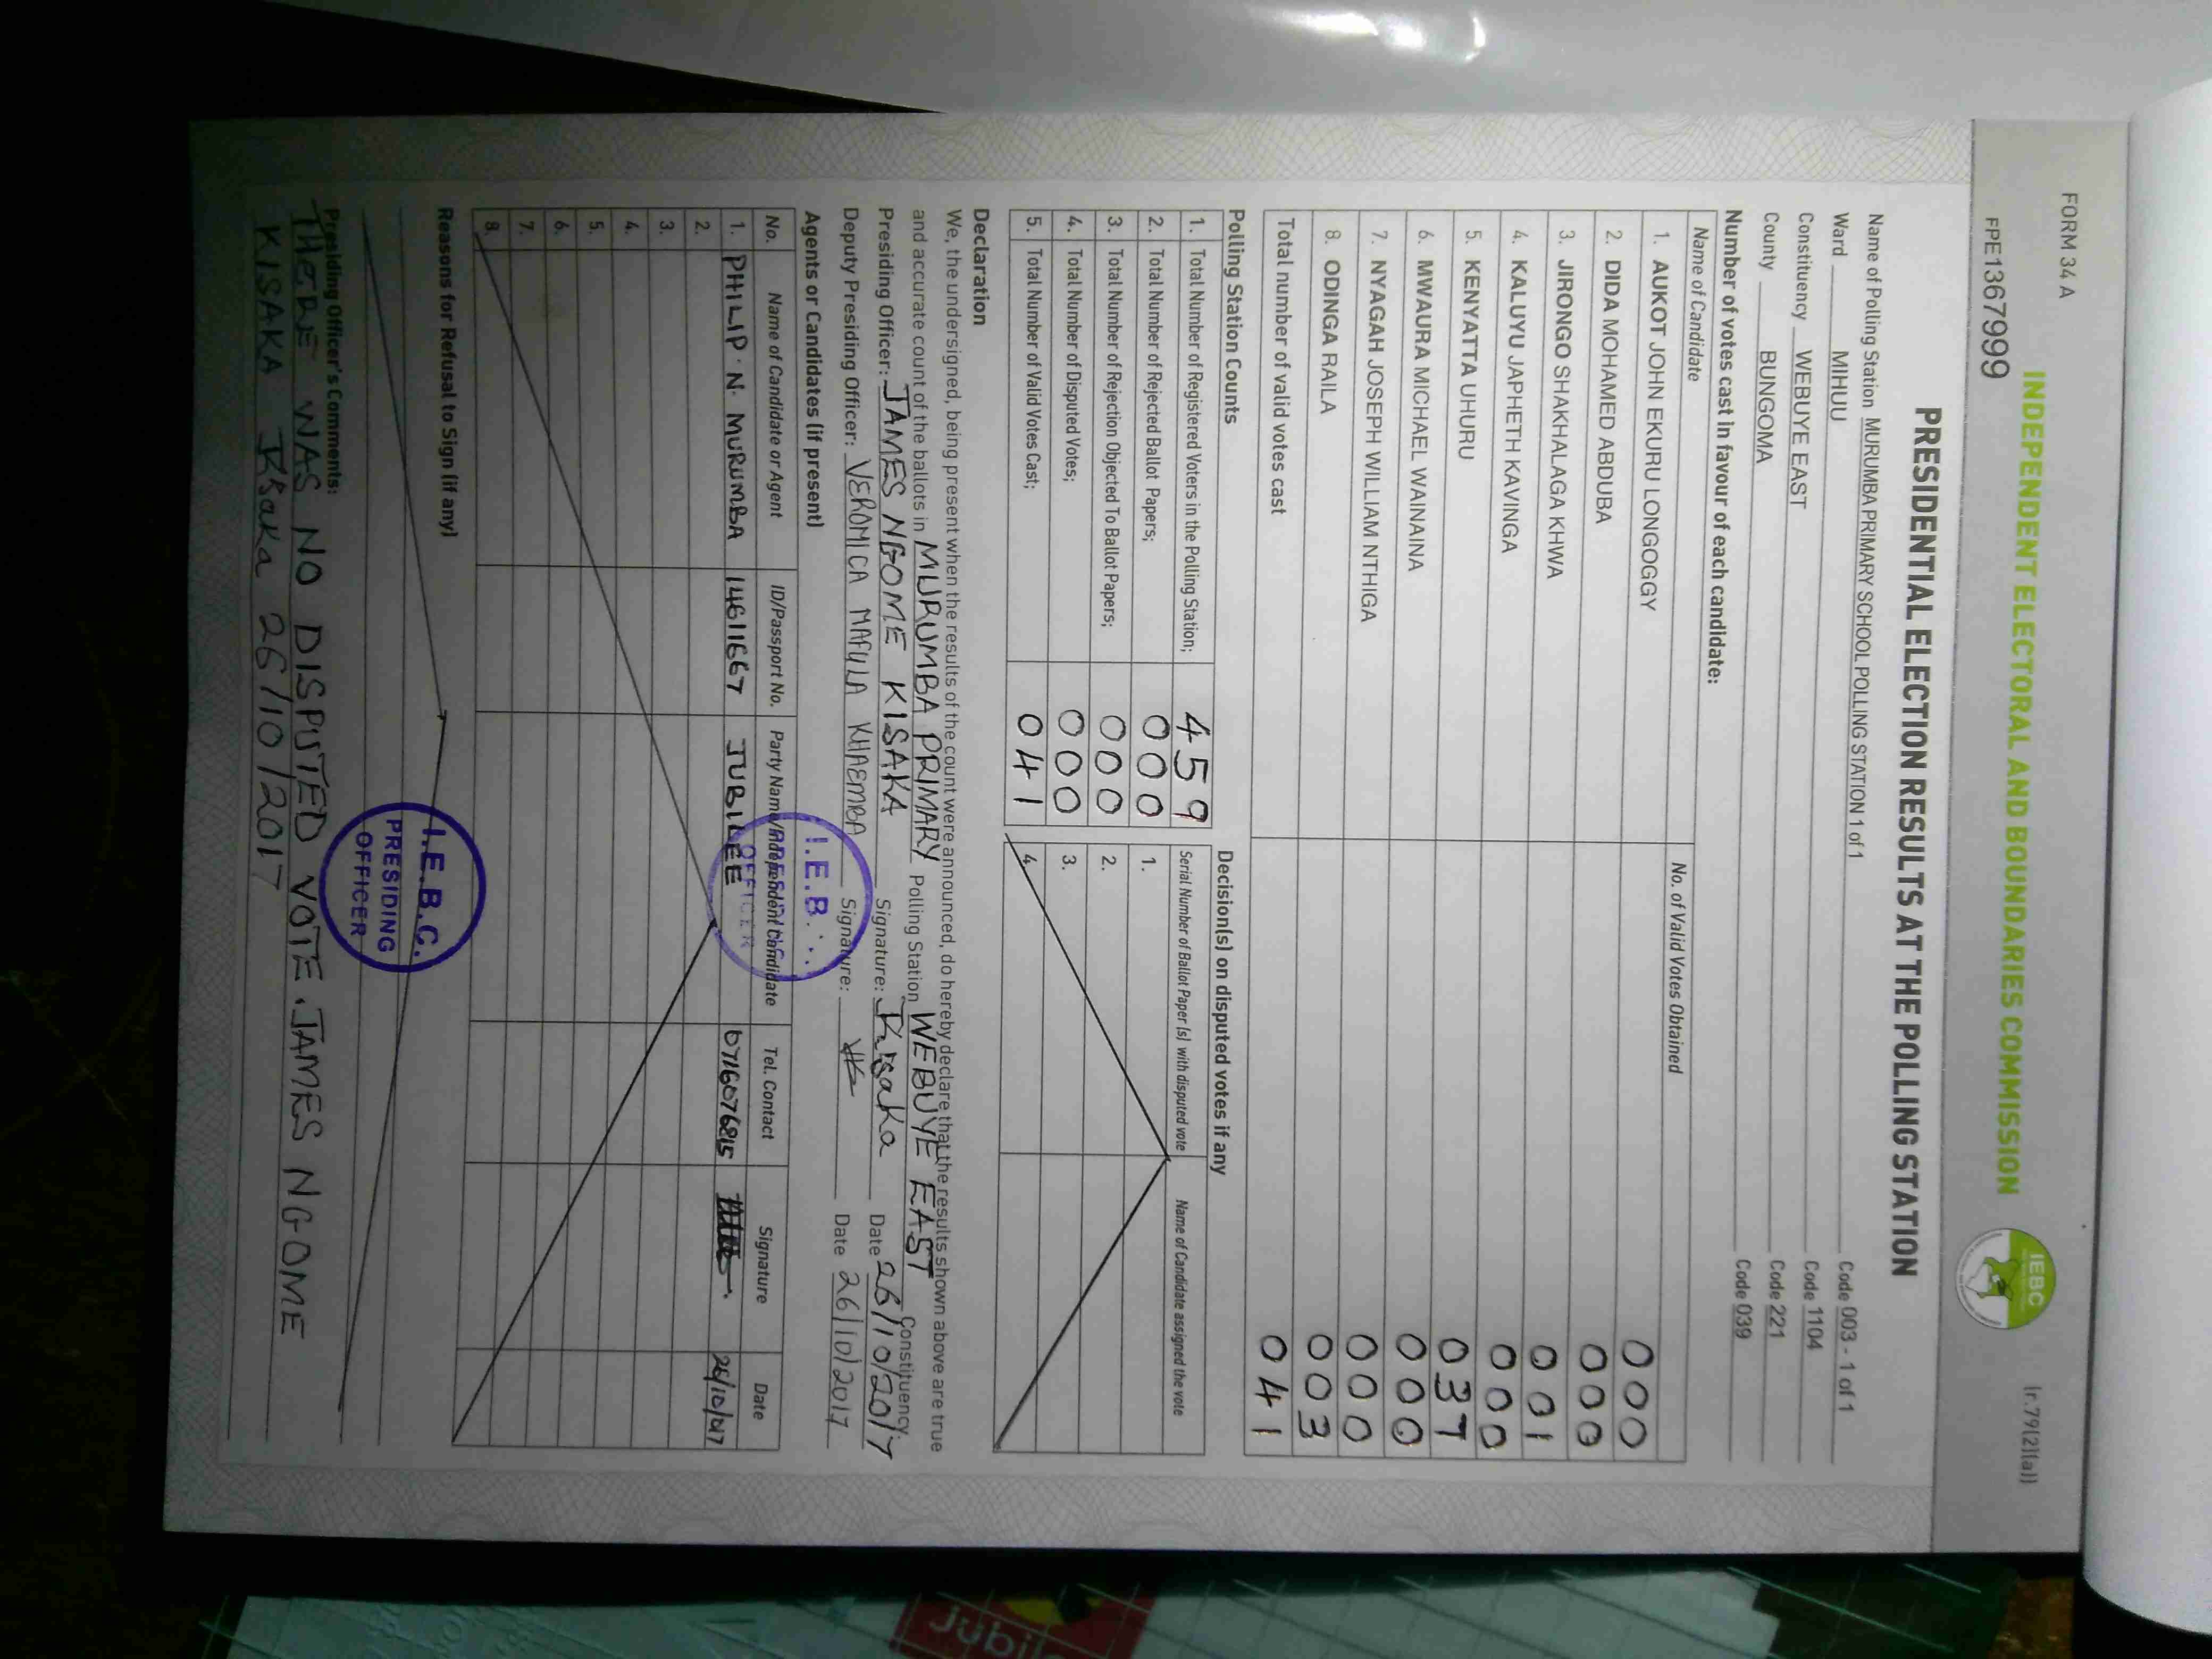 FORM 34 A
(r.79(2)(a))
INDEPENDENT ELECTORAL AND BOUNDARIES COMMISSION
IEBC
FPE1367999
PRESIDENTIAL ELECTION RESULTS AT THE POLLING STATION
Name of Polling Station MURUMBA PRIMARY SCHOOL POLLING STATION 1 of 1 Code 003 - 1 of 1
Ward MIHUU Code 1104
Constituency WEBUYE EAST Code 221
County BUNGOMA Code 039
Number of votes cast in favour of each candidate:
Name of Candidate No. of Valid Votes Obtained
1. AUKOT JOHN EKURU LONGOGGY 000
2. DIDA MOHAMED ABDUBA 000
3. JIRONGO SHAKHALAGA KHWA 001
4. KALUYU JAPHETH KAVINGA 000
5. KENYATTA UHURU 037
6. MWAURA MICHAEL WAINAINA 000
7. NYAGAH JOSEPH WILLIAM NTHIGA 000
8. ODINGA RAILA 003
Total number of valid votes cast 041
Polling Station Counts
1. Total Number of Registered Voters in the Polling Station; 459
2. Total Number of Rejected Ballot Papers; 000
3. Total Number of Rejection Objected To Ballot Papers; 000
4. Total Number of Disputed Votes; 000
5. Total Number of Valid Votes Cast; 041
Decision(s) on disputed votes if any
Serial Number of Ballot Paper (s) with disputed vote Name of Candidate assigned the vote
1.
2.
3.
4.
Declaration
We, the undersigned, being present when the results of the count were announced, do hereby declare that the results shown above are true
and accurate count of the ballots in MURUMBA PRIMARY Polling Station WEBUYE EAST Constituency.
Presiding Officer: JAMES NGOME KISAKA Signature: Kisaka Date 26/10/2017
Deputy Presiding Officer: VERONICA MAFULA KHAEMBA Signature: Date 26/10/2017
Agents or Candidates (if present)
No. Name of Candidate or Agent ID/Passport No. Party Name/Independent Candidate Tel. Contact Signature Date
1. PHILIP. N. MURUMBA 14611667 JUBILEE 0716076815 26/10/017
2.
3.
4.
5.
6.
7.
8.
I.E.B.
OFFICER
Reasons for Refusal to Sign (if any)
I.E.B.C.
PRESIDING
OFFICER
Presiding Officer's Comments:
THERE WAS NO DISPUTED VOTE. JAMES NGOME
KISAKA Kisaka 26/10/2017
Jubi